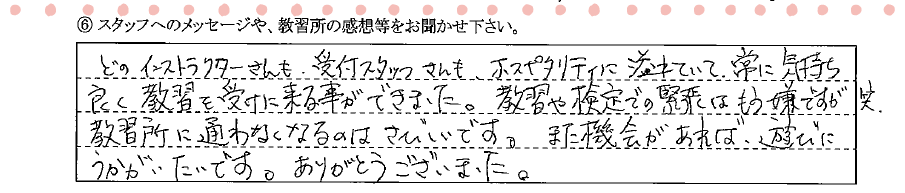 ⑥ スタッフへのメッセージや、教習所の感想等をお聞かせ下さい。
どのインストラクターさんも、受付スタッフさんも、ホスピタリティに溢れていて、常に気持ち
良く教習を受けに来る事ができました。教習や検定での緊張はもう嫌ですが笑、
教習所に通わなくなるのはさびしいです。また機会があれば、遊びに
うかがいたいです。ありがとうございました。